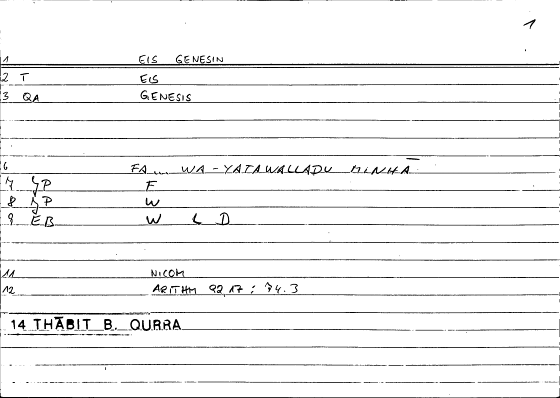 1
1 EIS GENESIN
2 T EIS
3 QA GENESIS
6 FA... WA-YATAWALLADU MINHĀ
7 JP F
8 JP W
9 EB W L D
11 NICOM
12 ARITHM 92,17 : 74.3
14 THĀBIT B. QURRA